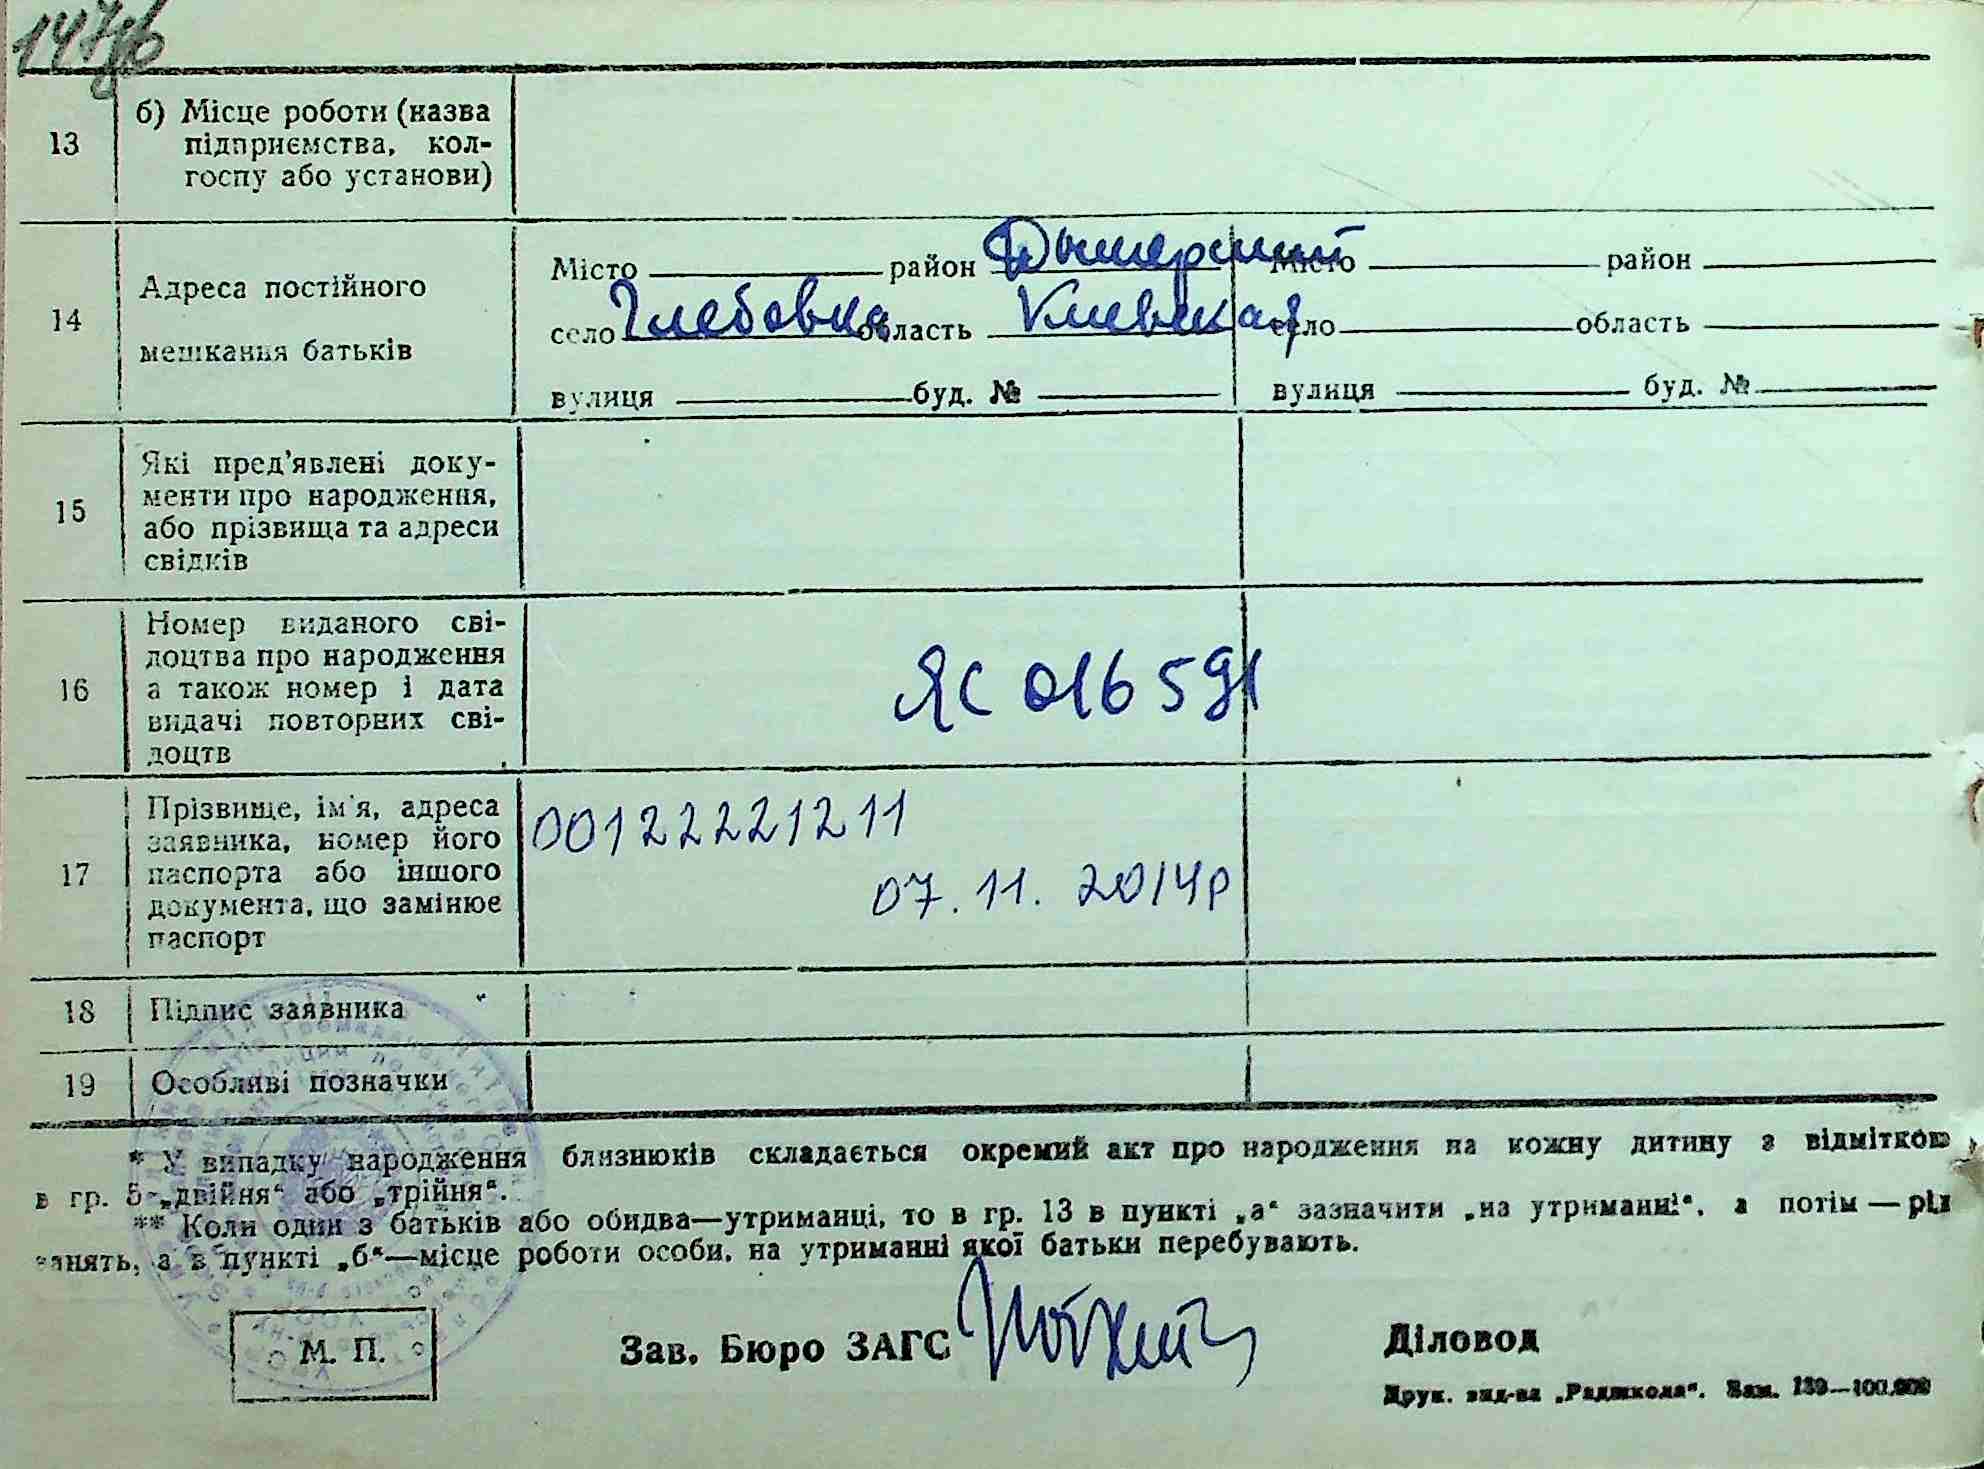 147зв
13
б) Місце роботи (назва
підприємства, кол-
госпу або установи)
14
Адреса постійного
мешкання батьків
Місто район Дымерский Місто район
село Глебовка область Киевская село область
вулиця буд. № вулиця буд. №
15
Які пред'явлені доку-
менти про народження,
або прізвища та адреси
свідків
16
Номер виданого сві-
доцтва про народження
а також номер і дата
видачі повторних сві-
доцтв
ЯС 016591
17
Прізвище, ім'я, адреса
заявника, номер його
паспорта або іншого
документа, що замінює
паспорт
00122221211
07.11.2014р
18 Підпис заявника
19 Особливі позначки
* У випадку народження близнюків складається окремий акт про народження на кожну дитину з відміткою
в гр. 5 „двійня“ або „трійня“.
** Коли один з батьків або обидва—утриманці, то в гр. 13 в пункті „а“ зазначити „на утриманні“, а потім — рід
занять, а в пункті „б“—місце роботи особи, на утриманні якої батьки перебувають.
М. П. Зав. Бюро ЗАГС Діловод
Друк. вид-ва „Радшкола“. Зам. 139—100.000